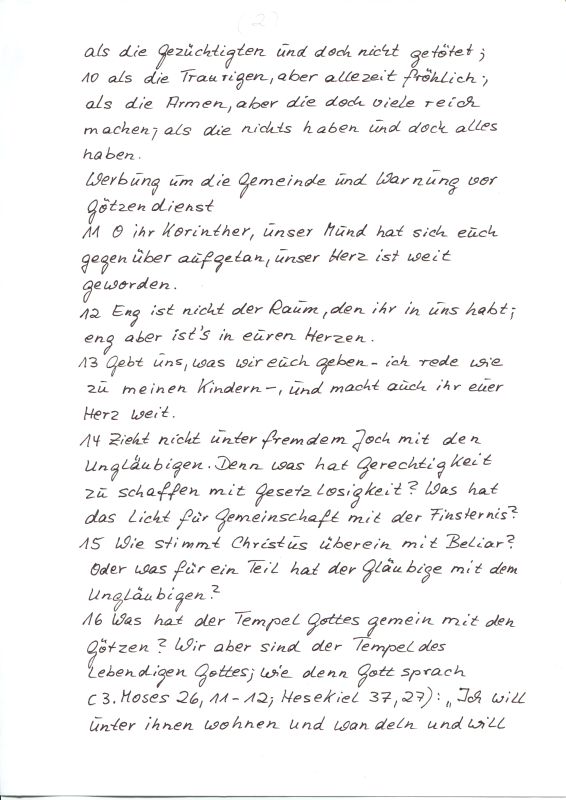 (2)
als die Gezüchtigten und doch nicht getötet;
10 als die Traurigen, aber allezeit fröhlich;
als die Armen, aber die doch viele reich
machen; als die nichts haben und doch alles
haben.
Werbung um die Gemeinde und Warnung vor
Götzendienst
11 O ihr Korinther, unser Mund hat sich euch
gegenüber aufgetan, unser Herz ist weit
geworden.
12 Eng ist nicht der Raum, den ihr in uns habt;
eng aber ist's in euren Herzen.
13 Gebt uns, was wir euch geben - ich rede wie
zu meinen Kindern -, und macht auch ihr euer
Herz weit.
14 Zieht nicht unter fremdem Joch mit den
Ungläubigen. Denn was hat Gerechtigkeit
zu schaffen mit Gesetzlosigkeit? Was hat
das Licht für Gemeinschaft mit der Finsternis?
15 Wie stimmt Christus überein mit Beliar?
Oder was für ein Teil hat der Gläubige mit dem
Ungläubigen?
16 Was hat der Tempel Gottes gemein mit den
Götzen? Wir aber sind der Tempel des
lebendigen Gottes; wie denn Gott sprach
(3. Moses 26, 11-12; Hesekiel 37, 27): „Ich will
unter ihnen wohnen und wandeln und will